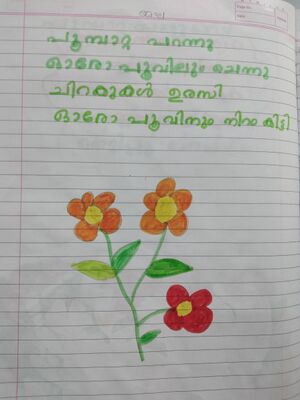 പൂമ്പാറ്റ പറന്നു
ഓരോ പൂവിലും ചെന്നു
ചിറകുകൾ ഉരസി
ഓരോ പൂവിനും നിറം കിട്ടി